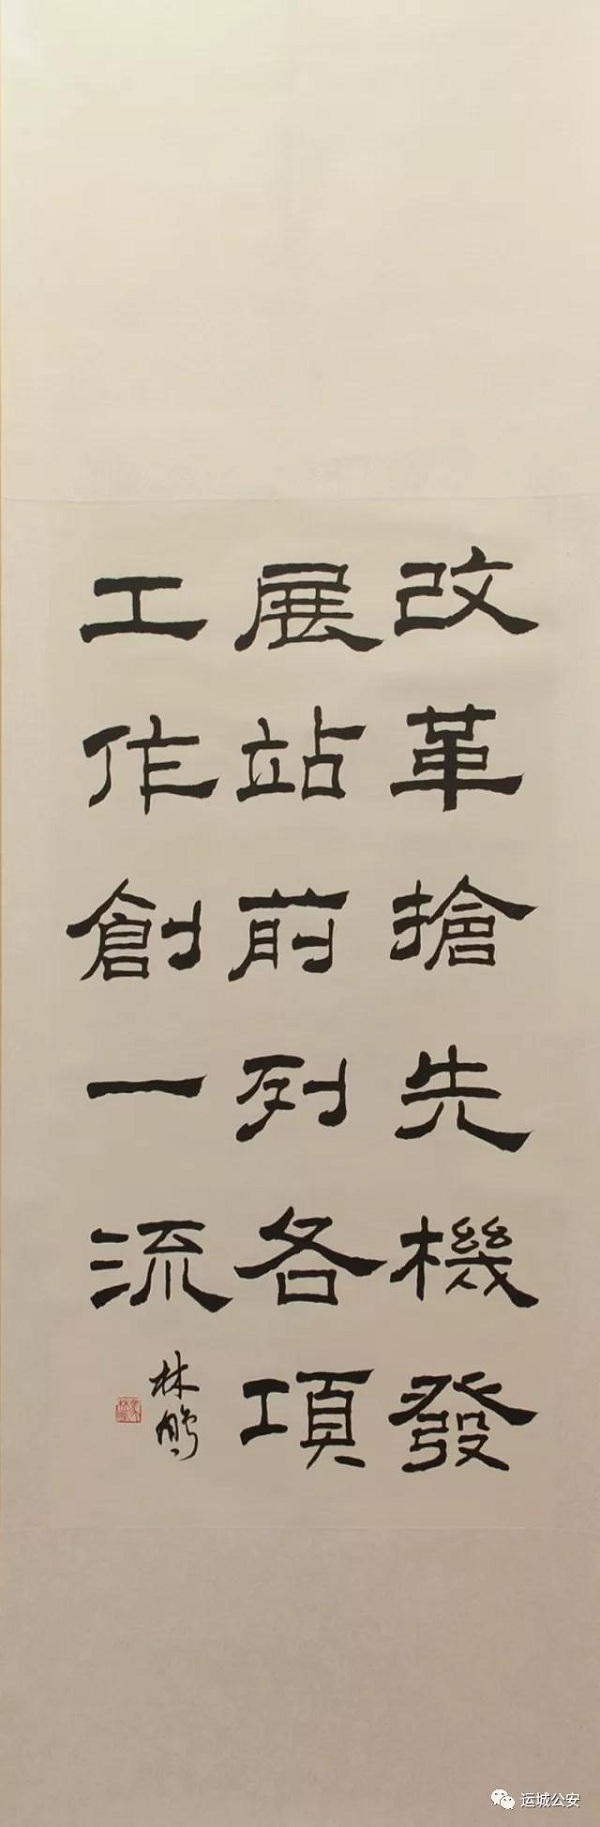 改革搶先機發
展站前列各項
工作創一流
林鵬
运城公安